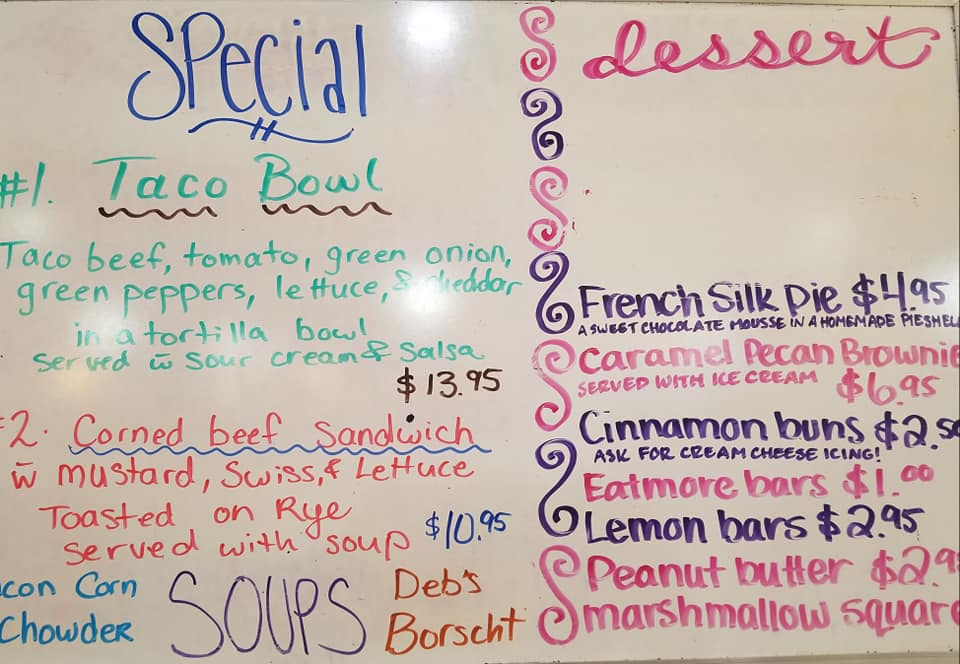 Special
#1. Taco Bowl
Taco beef, tomato, green onion,
green peppers, lettuce, & cheddar
in a tortilla bowl
served w̄ sour cream & salsa
$13.95
2. Corned beef Sandwich
w̄ mustard, Swiss, & Lettuce
Toasted on Rye
served with soup $10.95
con Corn
Chowder
SOUPS
Deb's
Borscht
dessert
French Silk Pie $4.95
A SWEET CHOCOLATE MOUSSE IN A HOMEMADE PIESHEL
Caramel Pecan Brownie
SERVED WITH ICE CREAM $6.95
Cinnamon buns $2.50
ASK FOR CREAM CHEESE ICING!
Eatmore bars $1.00
Lemon bars $2.95
Peanut butter $2.9
marshmallow square